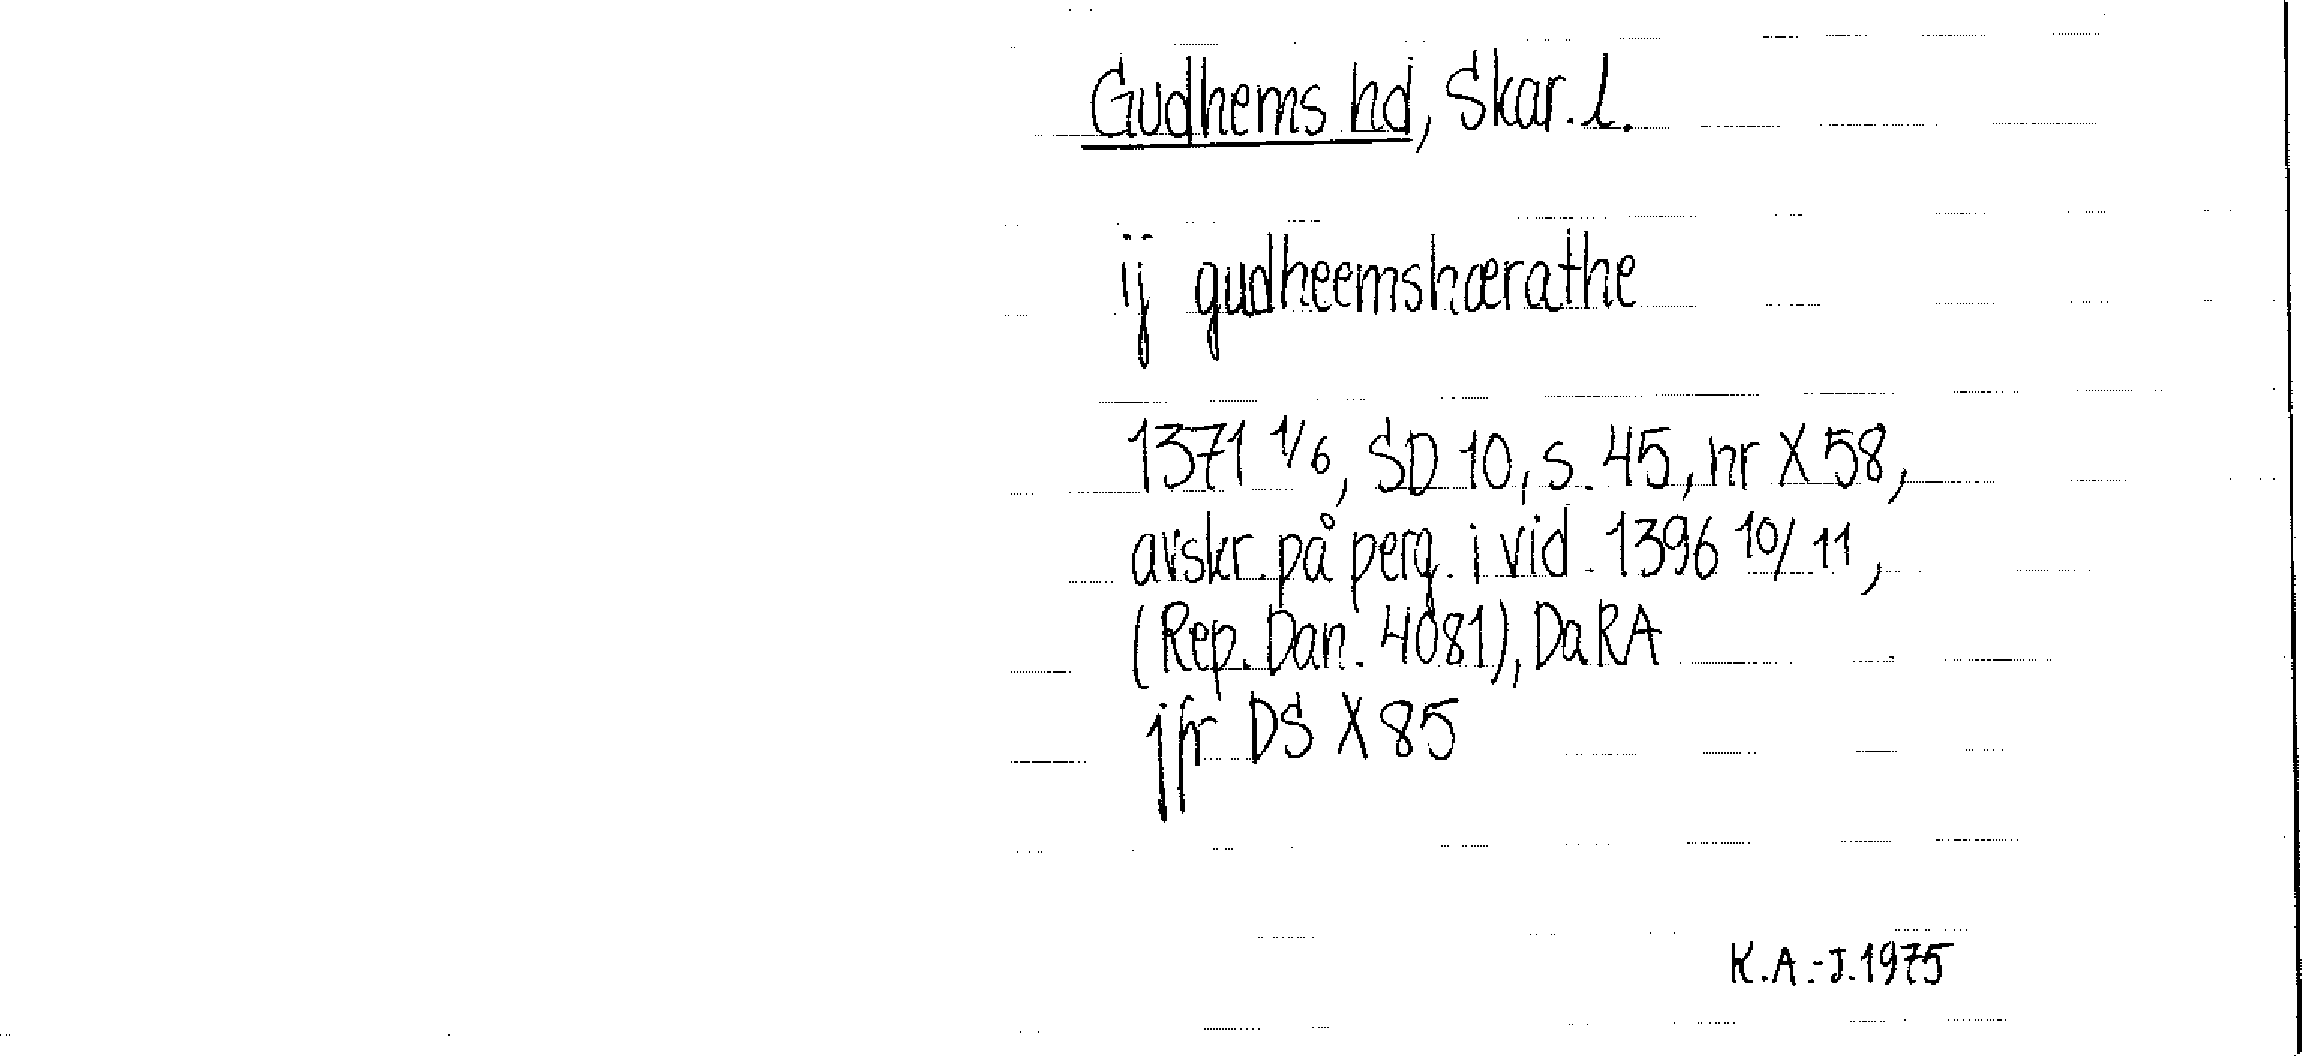 Gudhems hd, Skar. l.
ij gudheemshærathe
1371 1/6, SD 10, s. 45, nr X 58,
avskr. på perg. i vid. 1396 10/11,
(Rep. Dan. 4081), DaRA
jfr DS X 85
K.A.-J. 1975